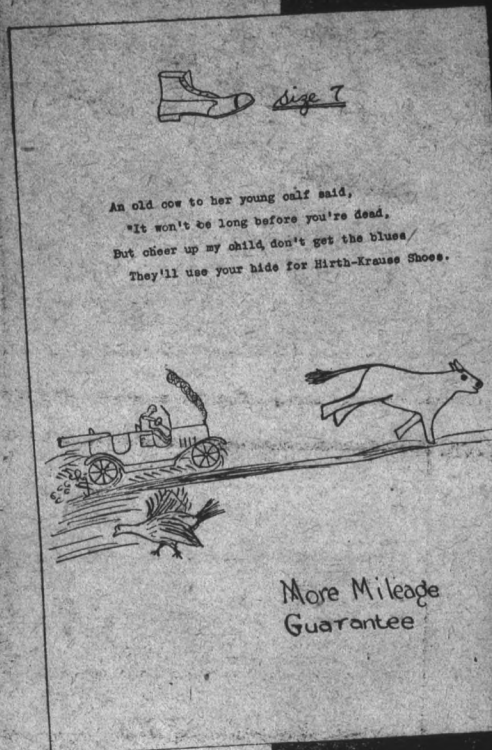 Size 7
An old cow to her young calf said,
"It won't be long before you're dead,
But cheer up my child, don't get the blues
They'll use your hide for Hirth-Krause Shoes.
More Mileage
Guarantee